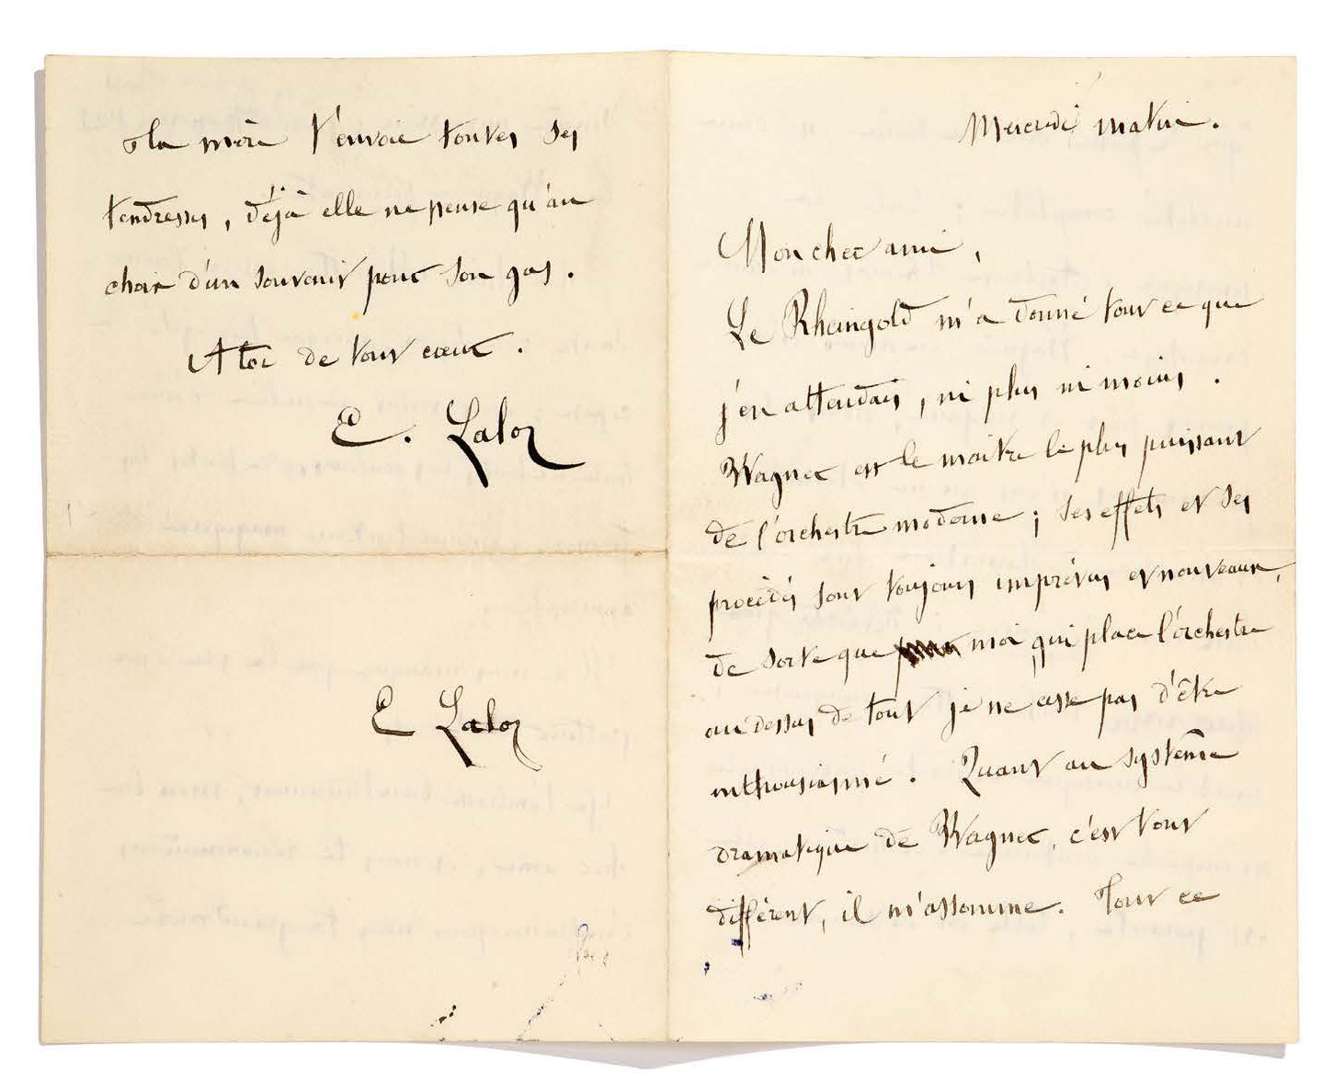 Mercredi matin.
Mon cher ami,
Le Rheingold m'a donné tout ce que
j'en attendais, ni plus ni moins.
Wagner est le maître le plus puissant
de l'orchestre moderne ; ses effets et ses
procédés sont toujours imprévus et nouveaux,
de sorte que moi qui place l'orchestre
au dessus de tout je ne cesse pas d'être
enthousiasmé. Quant au système
dramatique de Wagner, c'est tout
différent, il m'assomme. Tout ce
Ta mère t'envoie toutes ses
tendresses, déjà elle ne pense qu'au
choix d'un souvenir pour son gas.
A toi de tout cœur.
E. Lalo
E Lalo